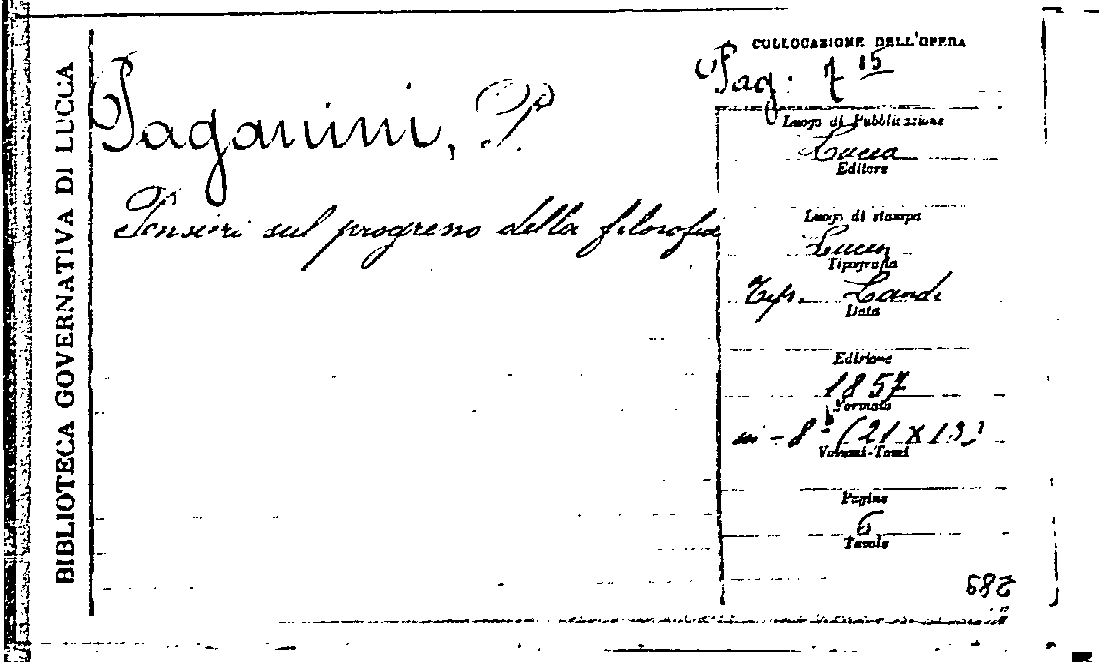 BIBLIOTECA GOVERNATIVA DI LUCCA
Paganini, P.
Pensieri sul progresso della filosofia
COLLOCAZIONE DELL'OPERA
Pag. 7 15
Luogo di Pubblicazione
Lucca
Editore
Luogo di stampa
Lucca
Tipografia
Tip. Landi
Data
Edizione
1857
Formato
in-8° (21 x 13)
Volumi-Tomi
Pagine
6
Tavole
289